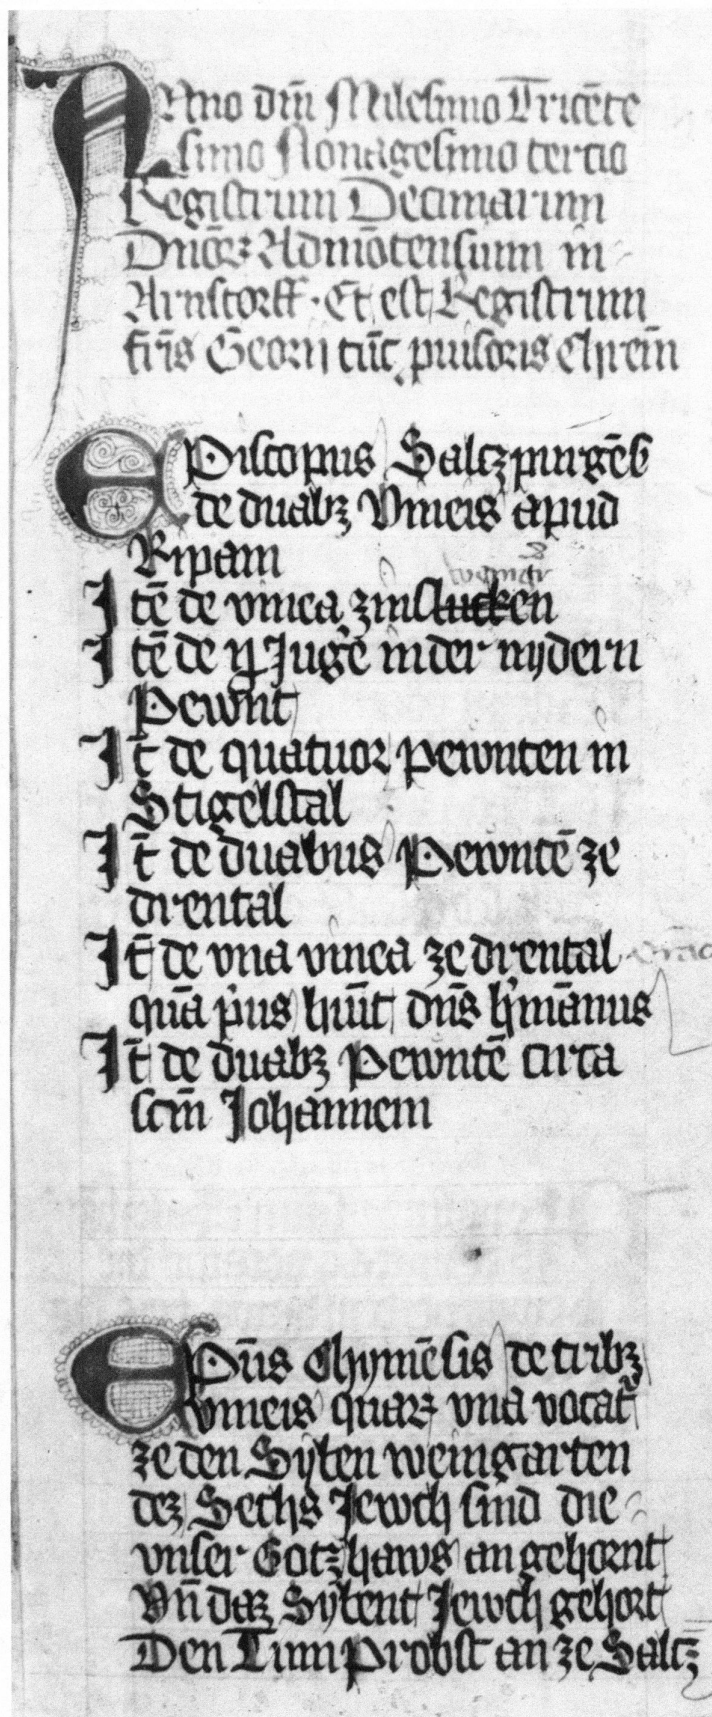 ANno dm̄ Milesimo Tricēte
simo Nonagesimo tercio
Registrum Decimarum
Dnōꝝ Admōtensium in
Arnstorff · Et est Registrum
fr̄is Georij tūc prouisoris Chrem̄
EPiscopus Saltzpurgēs
de duabꝫ Vineis apud
Ripam
Itē de vinea zinstucken
Itē de ij Jugē in der nydern
Pewnt
It̄ de quatuor pewnten in
Stigelstal
It̄ de duabus Pewntē ze
drental
It̄ de vna vinea ze drental
quā p̄us hūit dn̄s h̓mānus
It̄ de duabꝫ Pewntē circa
scm̄ Johannem
EPūs Chymēsis de tribꝫ
vineis quaꝝ vna vocat᷑
ze den Syben weingarten
dez Sechs Jewch sind die
vnser Gotzhaws an gehornt
Vn̄ daz Sybent Jewch gehort
Den Tum Probst an ze Saltz